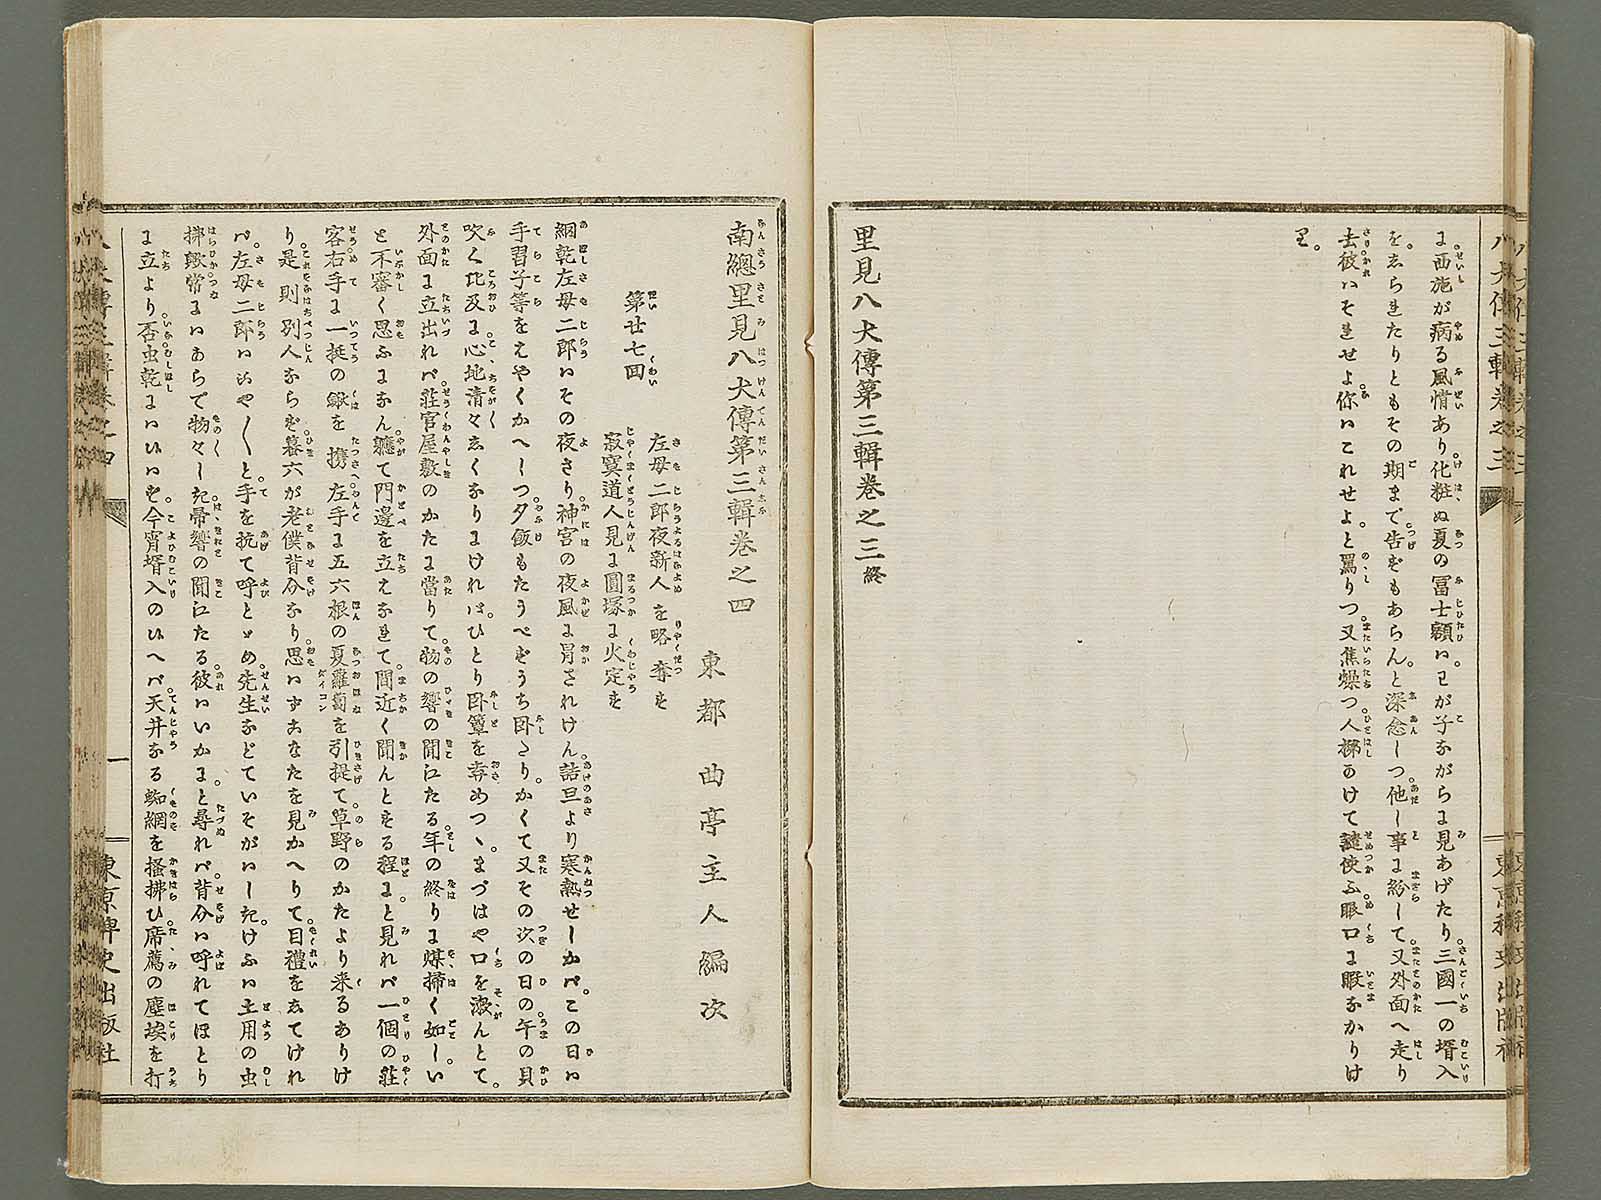 に西施が病る風情あり化粧ぬ夏の冨士額ハ。わが子ながらに見あげたり。三國一の壻入
を。しられたりともその期まで。告ずもあらんと深念しつ。他し事に紛して。又外面へ走り
去。彼ハそれせよ。你ハこれせよ。と罵りつ。又焦燥つ人梯かけて譴使ふ。眼口に暇なかりけ
り。
里見八犬傳第三輯卷之三終
南總里見八犬傳第三輯卷之四
東都 曲亭主人編次
第廿七囬
左母二郎夜新人を略奪す
寂寞道人見に圓塚に火定す
網乾左母二郎ハその夜さり。神宮の夜風に冐されけん。詰旦より寒熱せしかバ。この日ハ
手習子等をえやくかへしつ。夕飯もたうべずうち臥たり。かくて又その次の日の。午の貝
吹く比及に。心地清々しくなりにけれバ。ひとり臥簟を弆めつゝ。まづはや口を漱んとて。
外面に立出れバ。莊官屋敷のかたに當りて。物の響の聞えたる。年の終りに煤掃く如し。い
と不審く思ふになん。軈て門邊を立もなれて。間近く聞んとする程に。と見れバ一個の莊
客右手に一挺の鍬を携。左手に五六根の夏蘿蔔を引提て。草野のかたより来るありけ
り。是則別人ならず。暮六が老僕背介なり。思ハずこなたを見かへりて。目禮をしてけれ
バ。左母二郎ハいや〳〵と。手を抗て呼とゞめ。先生などていそがハしき。けふハ土用の虫
拂歟。常にハあらで物々しき。帚響の聞えたる。彼ハいかに。と尋れバ。背介ハ呼れてほとり
に立より。否虫乾にハハず。今宵壻入のハへバ。天井なる蜘網を掻拂ひ。席薦の塵埃を打
八犬傳三輯卷之三
東京稗史出版社
八犬傳三輯卷之四
一
東京稗史出版社